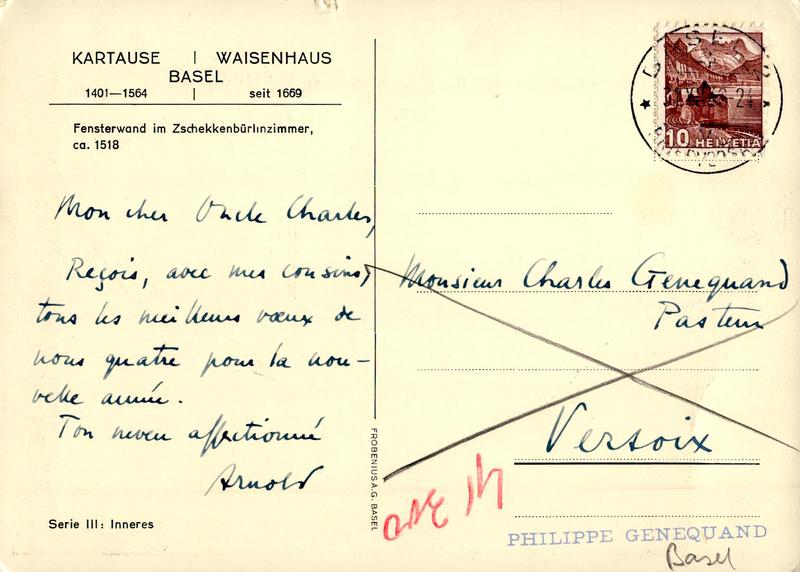 KARTAUSE | WAISENHAUS
BASEL
1401—1564 | seit 1669
Fensterwand im Zschekkenbürlinzimmer,
ca. 1518
Mon cher Oncle Charles,
Reçois, avec mes cousins,
tous les meilleurs vœux de
nous quatre pour la nou-
velle année.
Ton neveu affectionné
Arnold
Serie III: Inneres
FROBENIUS A.G. BASEL
10 HELVETIA
Monsieur Charles Genequand
Pasteur
Versoix
PHILIPPE GENEQUAND
Basel